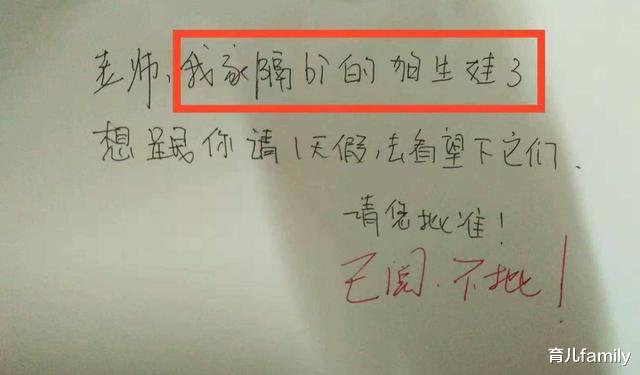 老师,我家隔bi的生娃了
想跟你请1天假,去看望下它们.
请您批准!
已阅.不批!
育儿family